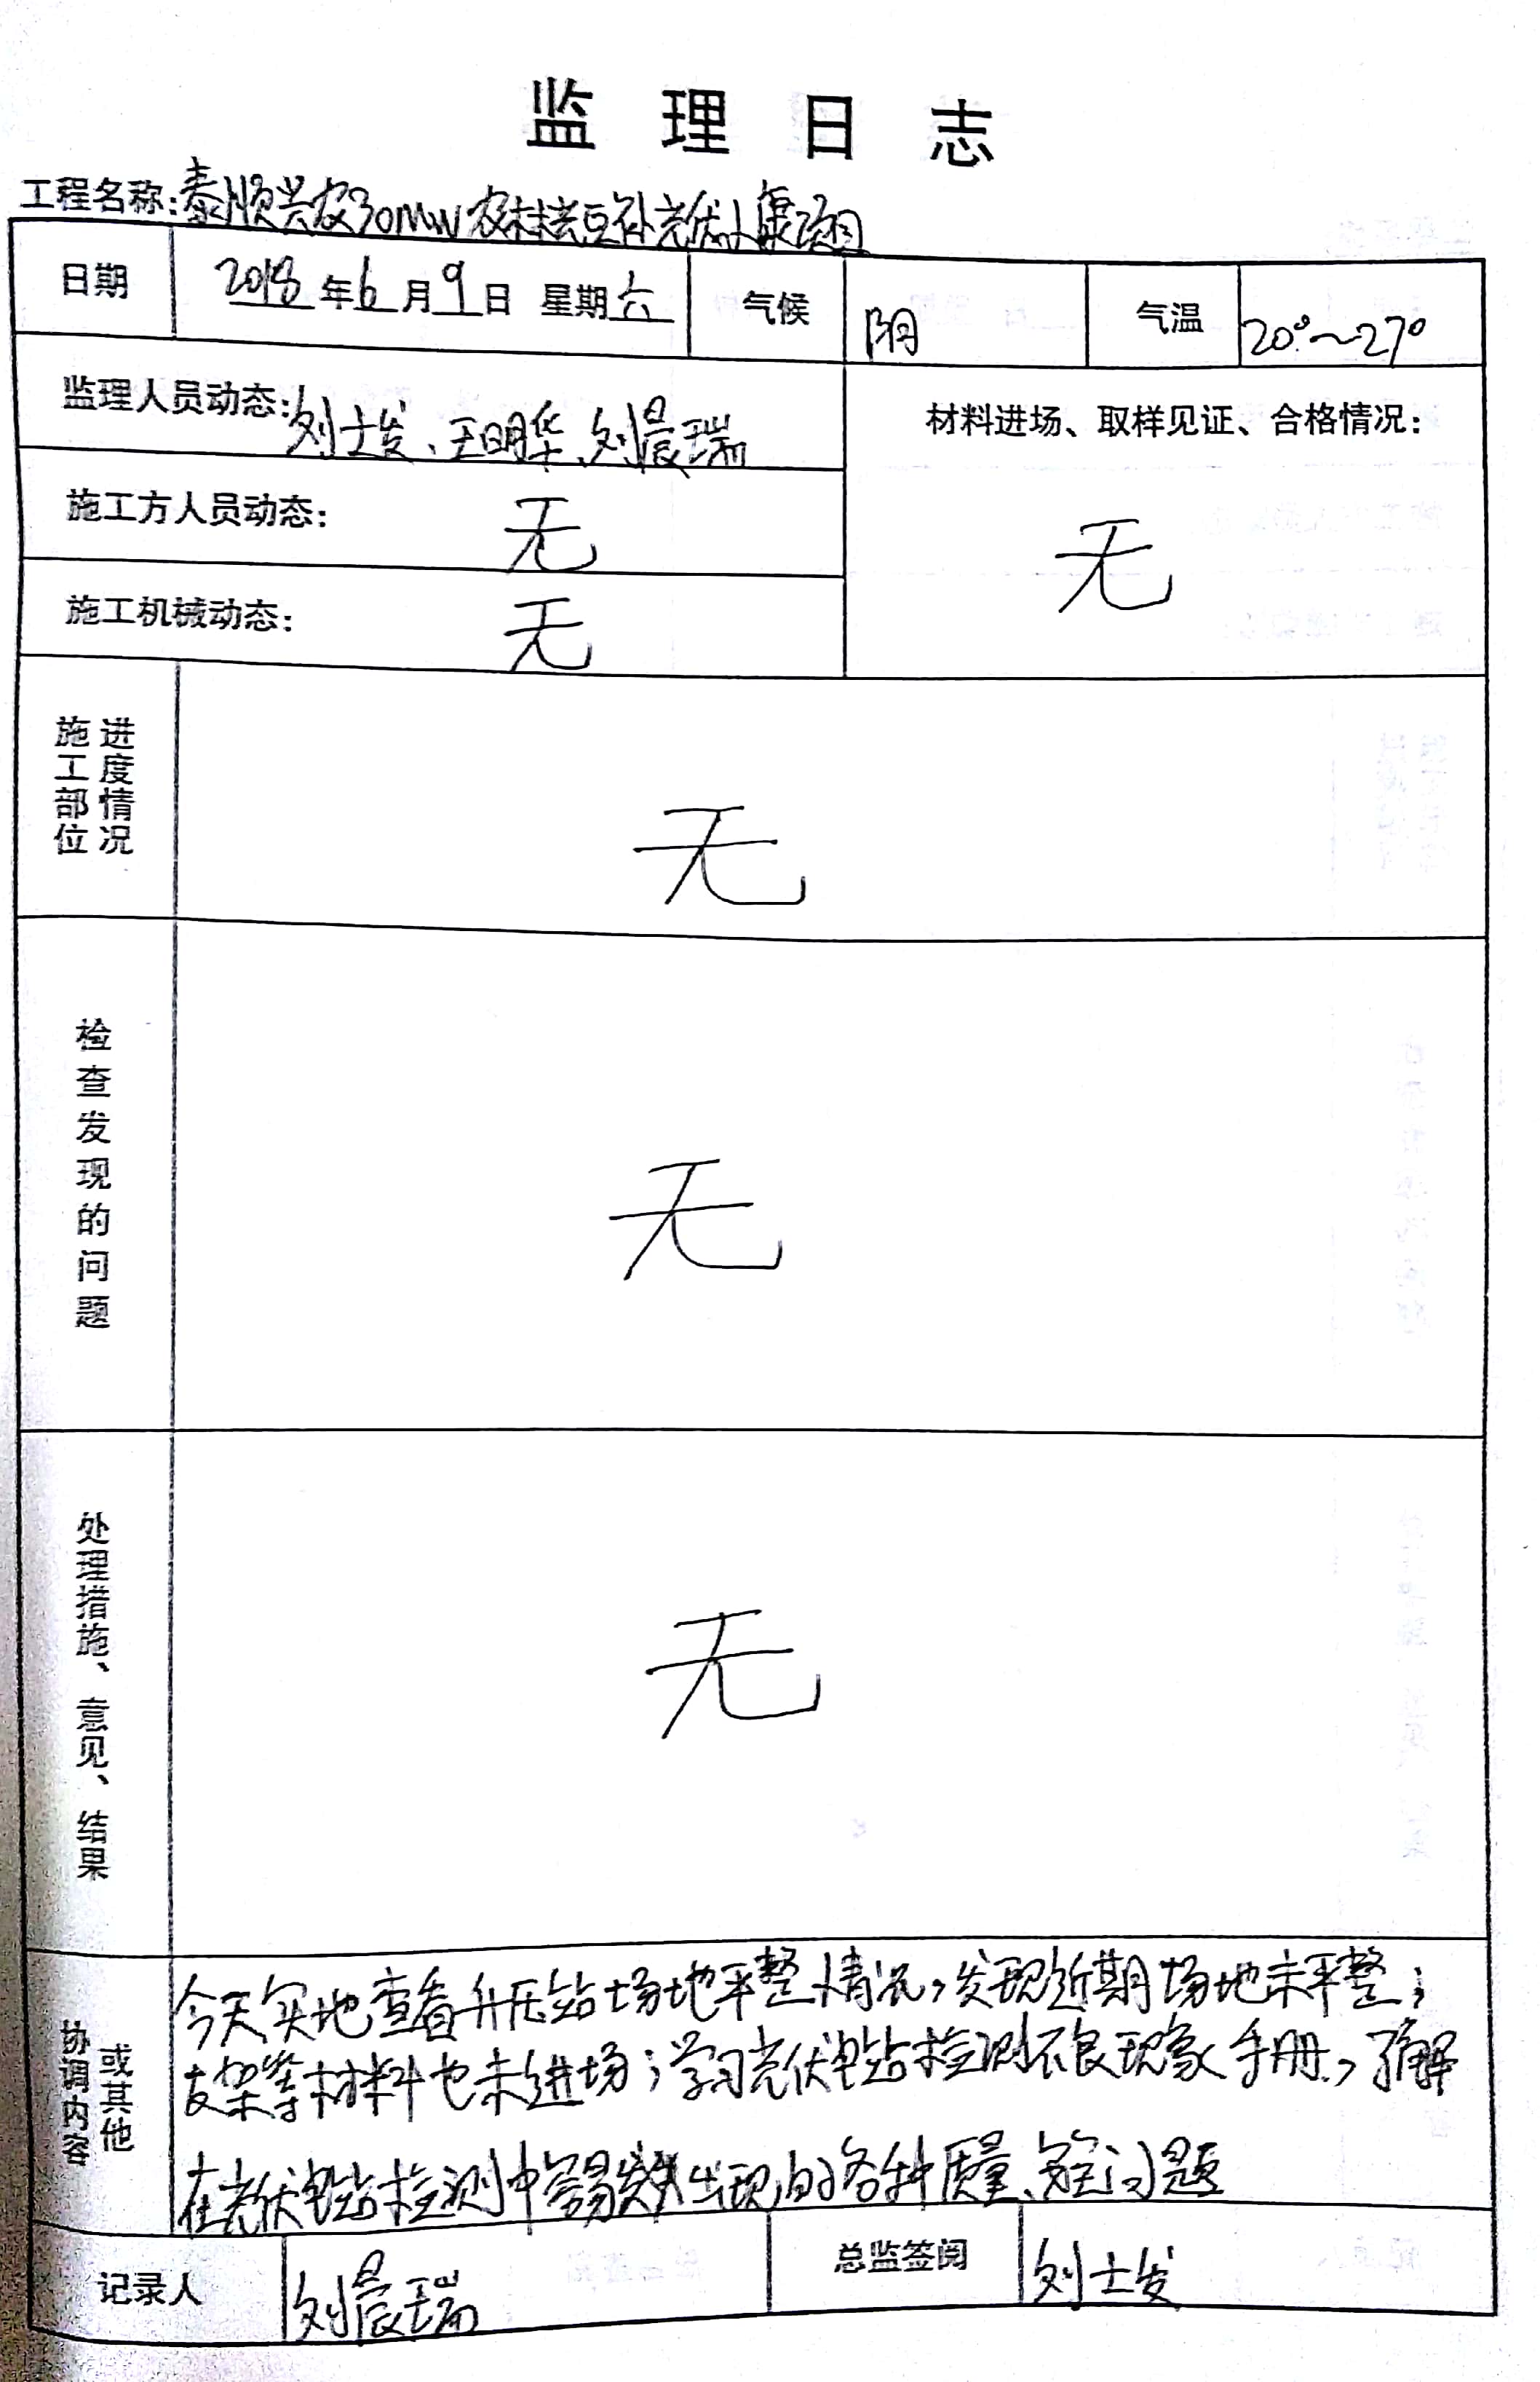 监理日志
工程名称:泰顺兴农30MW农林光互补光伏小康项目
日期 2018年6月9日 星期六 气候 阴 气温 20°~27°
监理人员动态:刘士发、王明华、刘晨瑞
材料进场、取样见证、合格情况:
无
施工方人员动态: 无
施工机械动态: 无
施工部位
进度情况
无
检查发现的问题
无
处理措施、意见、结果
无
协调内容
或其他
今天实地查看升压站场地平整情况,发现近期场地未平整;
支架等材料也未进场;学习光伏电站检测不良现象手册,了解
在光伏电站检测中容易出现的各种质量、安全问题
记录人 刘晨瑞 总监签阅 刘士发